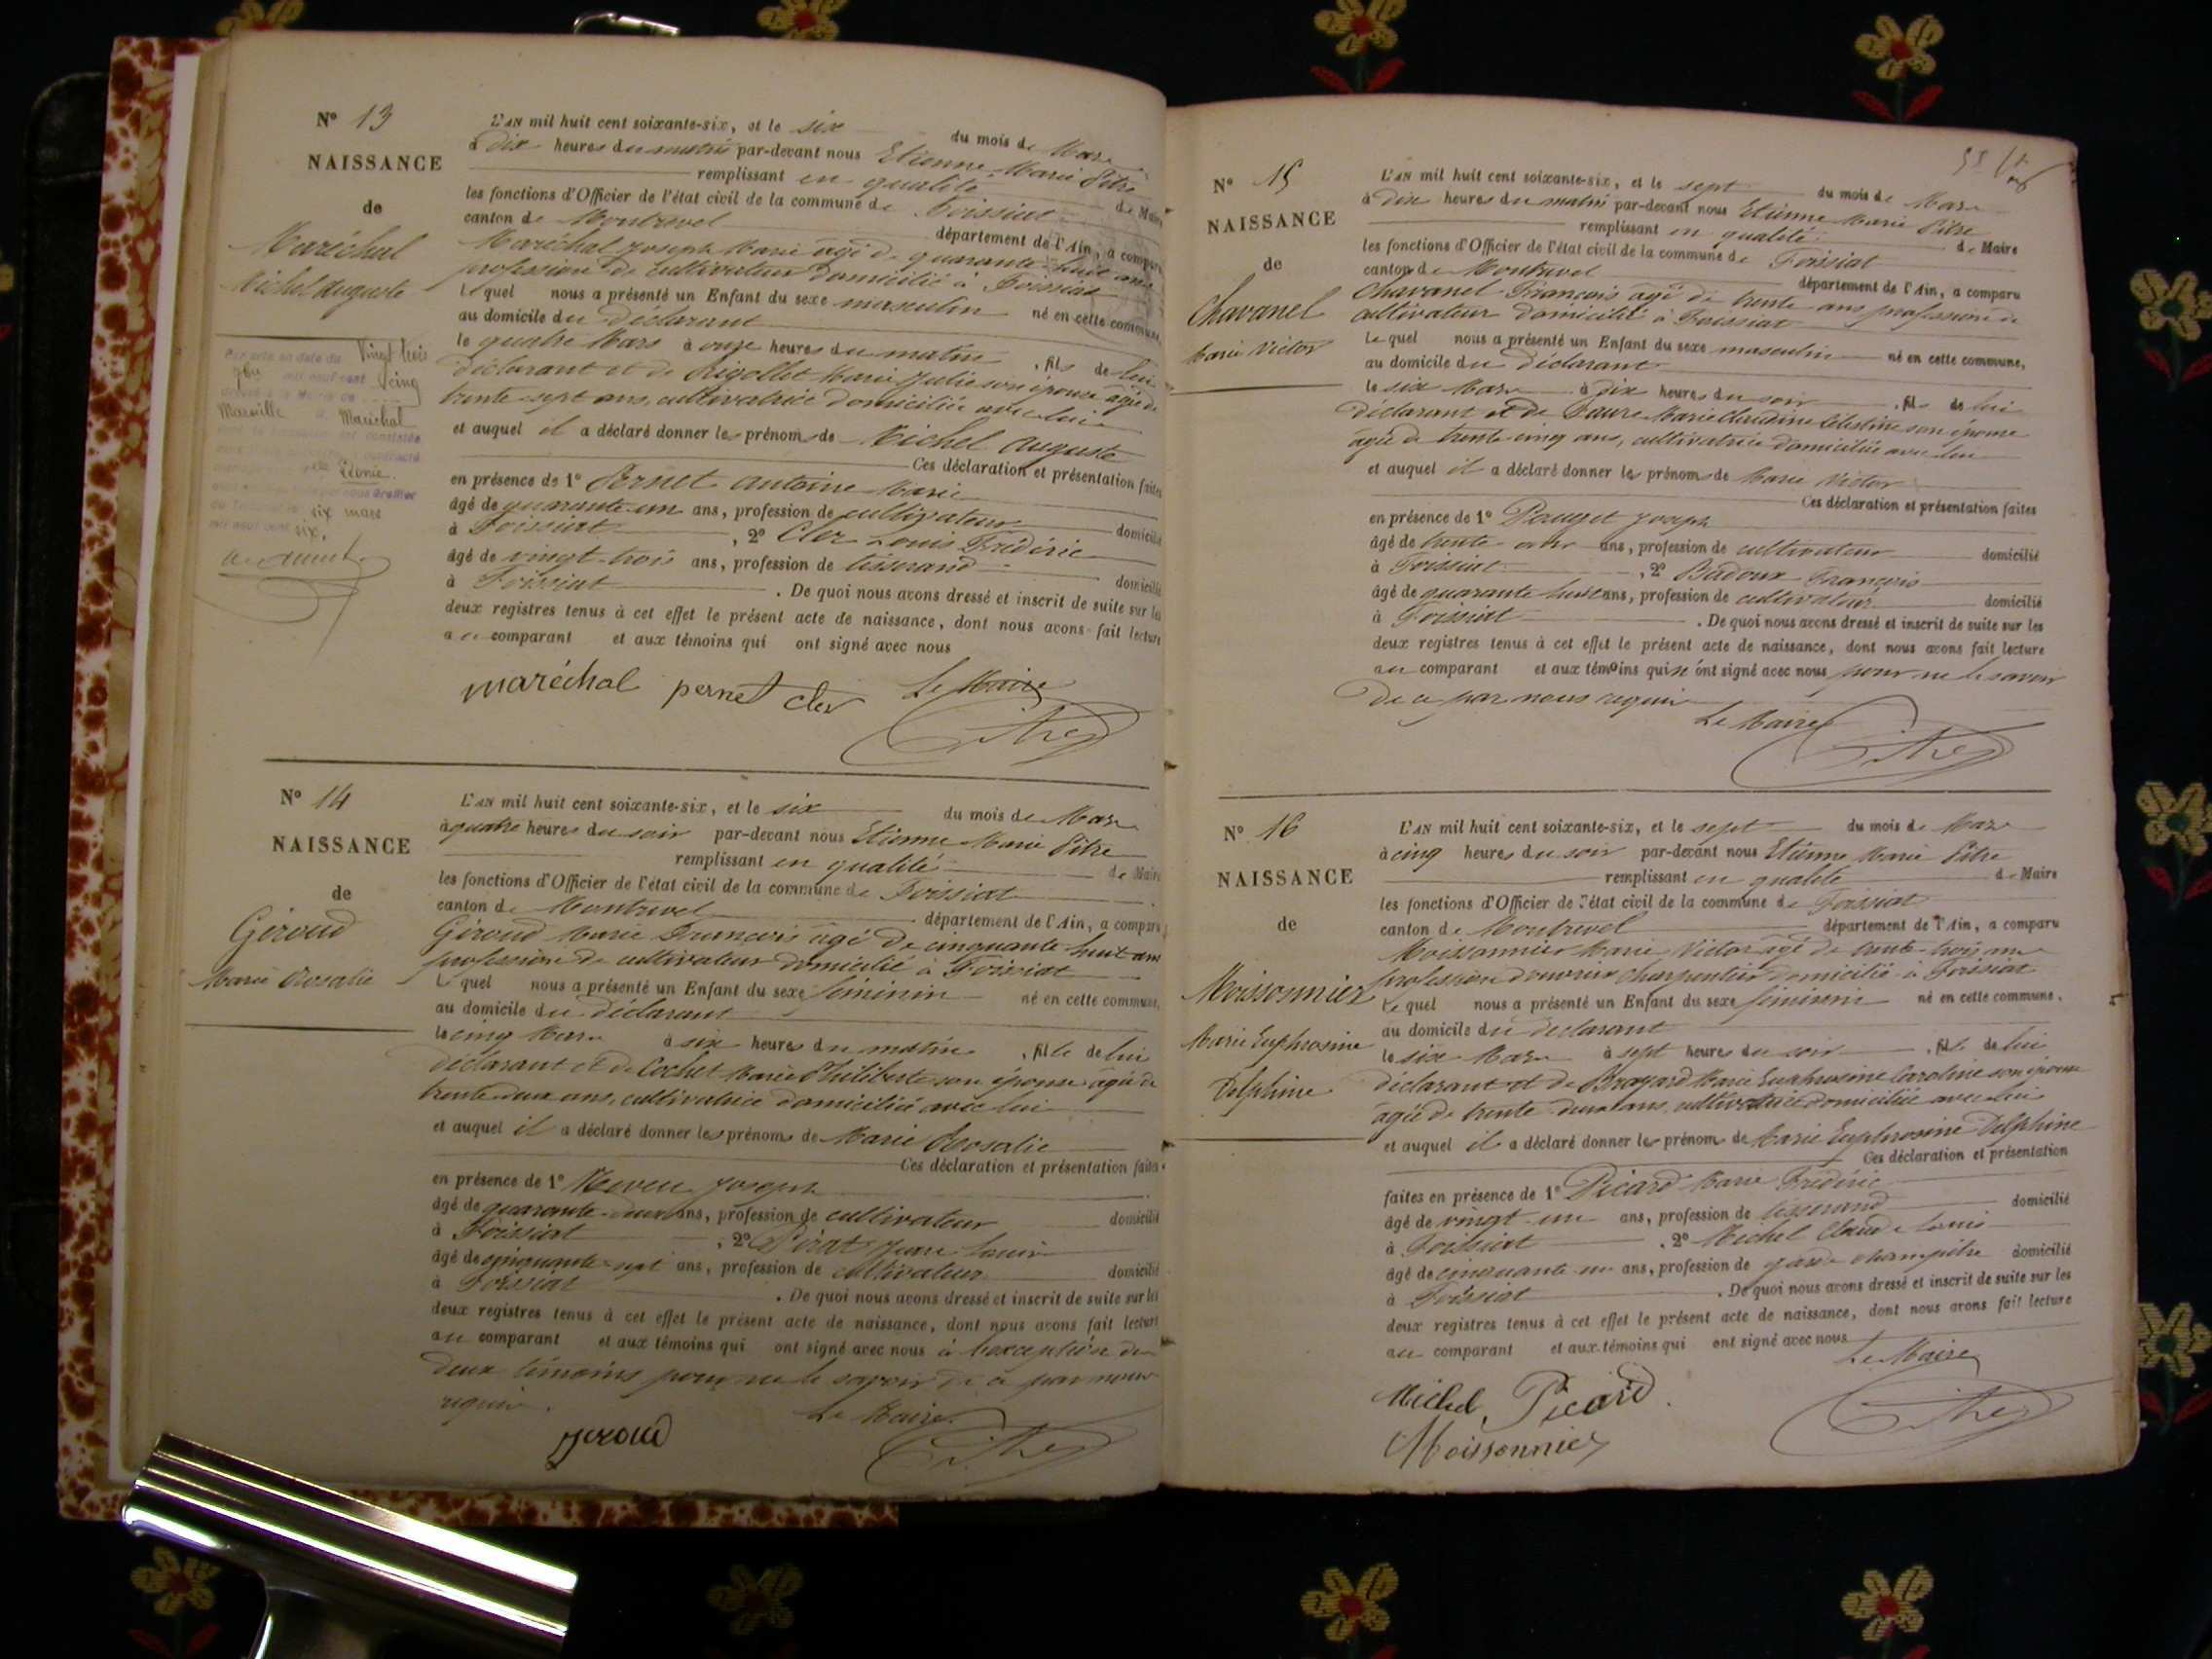 N° 13
NAISSANCE
de
Maréchal
Michel Auguste
Par acte en date du Vingt trois
mil neuf cent cinq
Marseille Maréchal
Léonie.
six mars
mil neuf cent six.
L'AN mil huit cent soixante-six, et le six du mois de Mars
à dix heures du matin par-devant nous Etienne Marie Pitre
remplissant en qualité de Maire
les fonctions d'Officier de l'état civil de la commune de Foissiat
canton de Montrevel département de l'Ain, a comparu
Maréchal Joseph Marie âgé de quarante-huit ans
profession de cultivateur domicilié à Foissiat
Lequel nous a présenté un Enfant du sexe masculin né en cette commune,
au domicile du déclarant
le quatre Mars à onze heures du matin, fils de lui
déclarant et de Rigollet Marie Julie son épouse âgée de
trente-sept ans, cultivatrice domiciliée avec lui
et auquel il a déclaré donner les prénoms de Michel Auguste
Ces déclaration et présentation faites
en présence de 1° Pernet Antoine Marie
âgé de quarante-un ans, profession de cultivateur domicilié
à Foissiat, 2° Cler Louis Frédéric
âgé de vingt-trois ans, profession de tisserand domicilié
à Foissiat. De quoi nous avons dressé et inscrit de suite sur les
deux registres tenus à cet effet le présent acte de naissance, dont nous avons fait lecture
au comparant et aux témoins qui ont signé avec nous
maréchal pernet cler Le Maire
Pitre
N° 14
NAISSANCE
de
Géroud
Marie Rosalie
L'AN mil huit cent soixante-six, et le six du mois de Mars
à quatre heures du soir par-devant nous Etienne Marie Pitre
remplissant en qualité de Maire
les fonctions d'Officier de l'état civil de la commune de Foissiat
canton de Montrevel département de l'Ain, a comparu
Géroud Marie François âgé de cinquante-huit ans
profession de cultivateur domicilié à Foissiat
Lequel nous a présenté un Enfant du sexe féminin né en cette commune,
au domicile du déclarant
le cinq Mars à six heures du matin, fille de lui
déclarant et de Cochet Marie Philiberte son épouse âgée de
trente-deux ans, cultivatrice domiciliée avec lui
et auquel il a déclaré donner les prénoms de Marie Rosalie
Ces déclaration et présentation faites
en présence de 1° Joseph
âgé de quarante-deux ans, profession de cultivateur domicilié
à Foissiat, 2° Pirat Jean Louis
âgé de cinquante-sept ans, profession de cultivateur domicilié
à Foissiat. De quoi nous avons dressé et inscrit de suite sur les
deux registres tenus à cet effet le présent acte de naissance, dont nous avons fait lecture
au comparant et aux témoins qui ont signé avec nous à l'exception des
deux témoins pour ne le savoir de ce par nous
requis.
Le Maire
geroud Pitre
N° 15
NAISSANCE
de
Chavanel
Marie Victor
L'AN mil huit cent soixante-six, et le sept du mois de Mars
à dix heures du matin par-devant nous Etienne Marie Pitre
remplissant en qualité de Maire
les fonctions d'Officier de l'état civil de la commune de Foissiat
canton de Montrevel département de l'Ain, a comparu
Chavanel François âgé de trente ans profession de
cultivateur domicilié à Foissiat
Lequel nous a présenté un Enfant du sexe masculin né en cette commune,
au domicile du déclarant
le six Mars à dix heures du soir, fils de lui
déclarant et de Faure Marie Claudine Célestine son épouse
âgée de trente-cinq ans, cultivatrice domiciliée avec lui
et auquel il a déclaré donner les prénoms de Marie Victor
Ces déclaration et présentation faites
en présence de 1° Pauget Joseph
âgé de trente ans, profession de cultivateur domicilié
à Foissiat, 2° Badoux François
âgé de quarante-huit ans, profession de cultivateur domicilié
à Foissiat. De quoi nous avons dressé et inscrit de suite sur les
deux registres tenus à cet effet le présent acte de naissance, dont nous avons fait lecture
au comparant et aux témoins qui n'ont signé avec nous pour ne le savoir
de ce par nous requis
Le Maire
Pitre
N° 16
NAISSANCE
de
Moissonnier
Marie Euphrosine
Delphine
L'AN mil huit cent soixante-six, et le sept du mois de Mars
à cinq heures du soir par-devant nous Etienne Marie Pitre
remplissant en qualité de Maire
les fonctions d'Officier de l'état civil de la commune de Foissiat
canton de Montrevel département de l'Ain, a comparu
Moissonnier Marie Victor âgé de trente-trois ans
profession d'ouvrier charpentier domicilié à Foissiat
Lequel nous a présenté un Enfant du sexe féminin né en cette commune,
au domicile du déclarant
le six Mars à sept heures du soir, fille de lui
déclarant et de Broyard Marie Euphrosine Caroline son épouse
âgée de trente-deux ans, cultivatrice domiciliée avec lui
et auquel il a déclaré donner les prénoms de Marie Euphrosine Delphine
Ces déclaration et présentation
faites en présence de 1° Picard Marie Frédéric
âgé de vingt-un ans, profession de tisserand domicilié
à Foissiat, 2° Michel Claude Louis
âgé de cinquante-un ans, profession de garde champêtre domicilié
à Foissiat. De quoi nous avons dressé et inscrit de suite sur les
deux registres tenus à cet effet le présent acte de naissance, dont nous avons fait lecture
au comparant et aux témoins qui ont signé avec nous
Le Maire
Michel Picard
Moissonnier Pitre